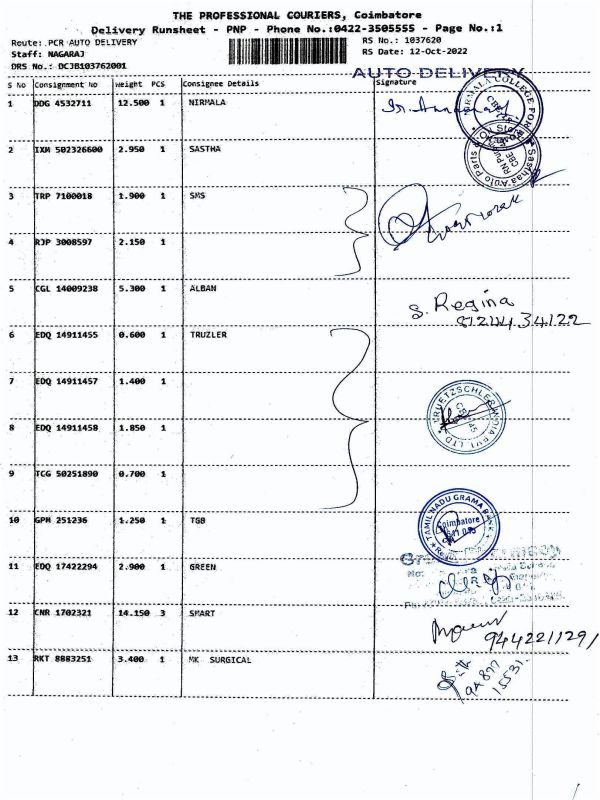 THE PROFESSIONAL COURIERS, Coimbatore
Delivery Runsheet - PNP - Phone No.:0422-3505555 - Page No.:1
Route: PCR AUTO DELIVERY RS No.: 1037620
Staff: NAGARAJ RS Date: 12-Oct-2022
DRS No.: DCJB103762001
AUTO DELIVERY
S No Consignment No Weight PCS Consignee Details Signature
1 DDG 4532711 12.500 1 NIRMALA
2 IXM 502326600 2.950 1 SASTHA
3 TRP 7100018 1.900 1 SMS
4 RJP 3008597 2.150 1
5 CGL 14009238 5.300 1 ALBAN
S. Regina
6 EDQ 14911455 0.600 1 TRUZLER
7 EDQ 14911457 1.400 1
8 EDQ 14911458 1.850 1
9 TCG 50251890 0.700 1
10 GPM 251236 1.250 1 TGB
TAMIL NADU GRAMA BANK
Coimbatore
11 EDQ 17422294 2.900 1 GREEN
12 CNR 1702321 14.150 3 SMART
9442211291
13 RKT 8883251 3.400 1 MK SURGICAL